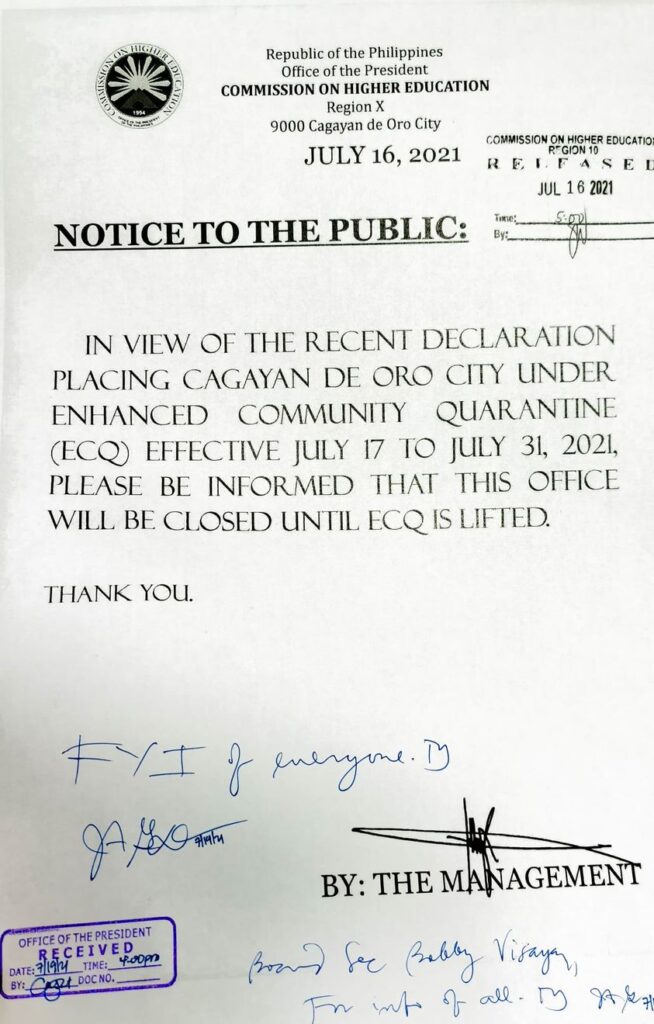 COMMISSION ON HIGHER EDUCATION
1994
OFFICE OF THE PRESIDENT
OF THE PHILIPPINES
Republic of the Philippines
Office of the President
COMMISSION ON HIGHER EDUCATION
Region X
9000 Cagayan de Oro City
JULY 16, 2021
COMMISSION ON HIGHER EDUCATIO
REGION 10
RELEASED
JUL 16 2021
Time: 5:00
By:
NOTICE TO THE PUBLIC:
IN VIEW OF THE RECENT DECLARATION
PLACING CAGAYAN DE ORO CITY UNDER
ENHANCED COMMUNITY QUARANTINE
(ECQ) EFFECTIVE JULY 17 TO JULY 31, 2021,
PLEASE BE INFORMED THAT THIS OFFICE
WILL BE CLOSED UNTIL ECQ IS LIFTED.
THANK YOU.
FYI of everyone. Ty
7/19/21
BY: THE MANAGEMENT
OFFICE OF THE PRESIDENT
RECEIVED
DATE: 7/19/21 TIME: 4:00pm
BY: DOC NO.
Board Sec Bobby Visayan,
For info of all. Ty